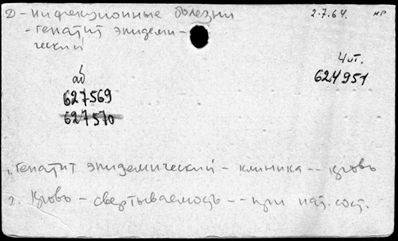 D - инфекционные болезни 2.7.64. нр
- гепатит эпидеми-
ческий
4 от.
аб 624951
627569
627570
1. Гепатит эпидемический - клиника -- кровь
2. Кровь - свертываемость -- при пат. сост.